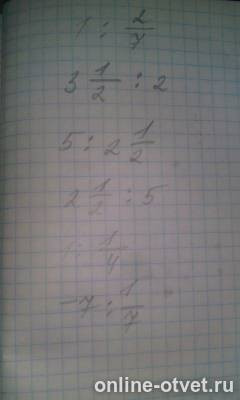 1 : 2/7
3 1/2 : 2
5 : 2 1/2
2 1/2 : 5
1 : 1/4
-7 : 1/7
online-otvet.ru